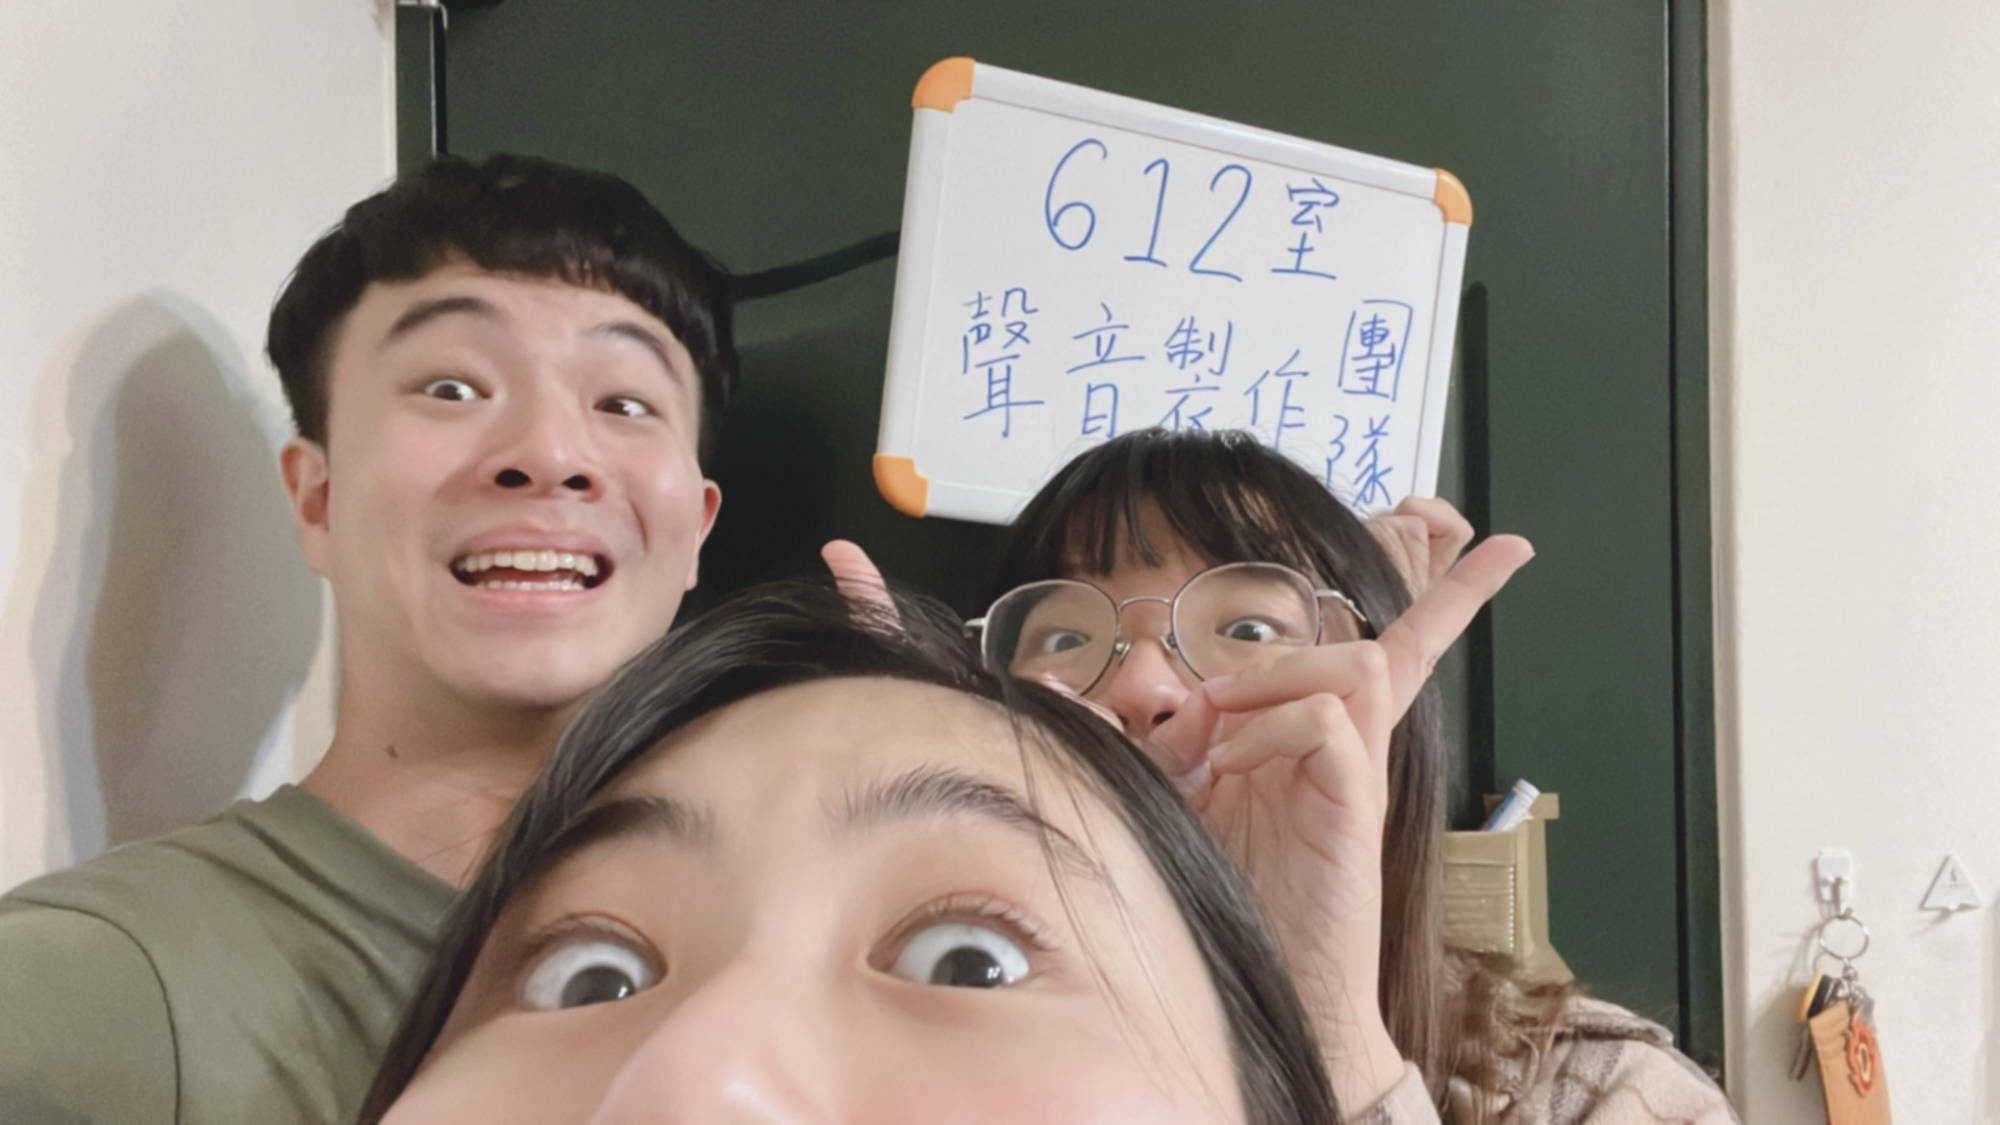 612室
聲音製作團隊